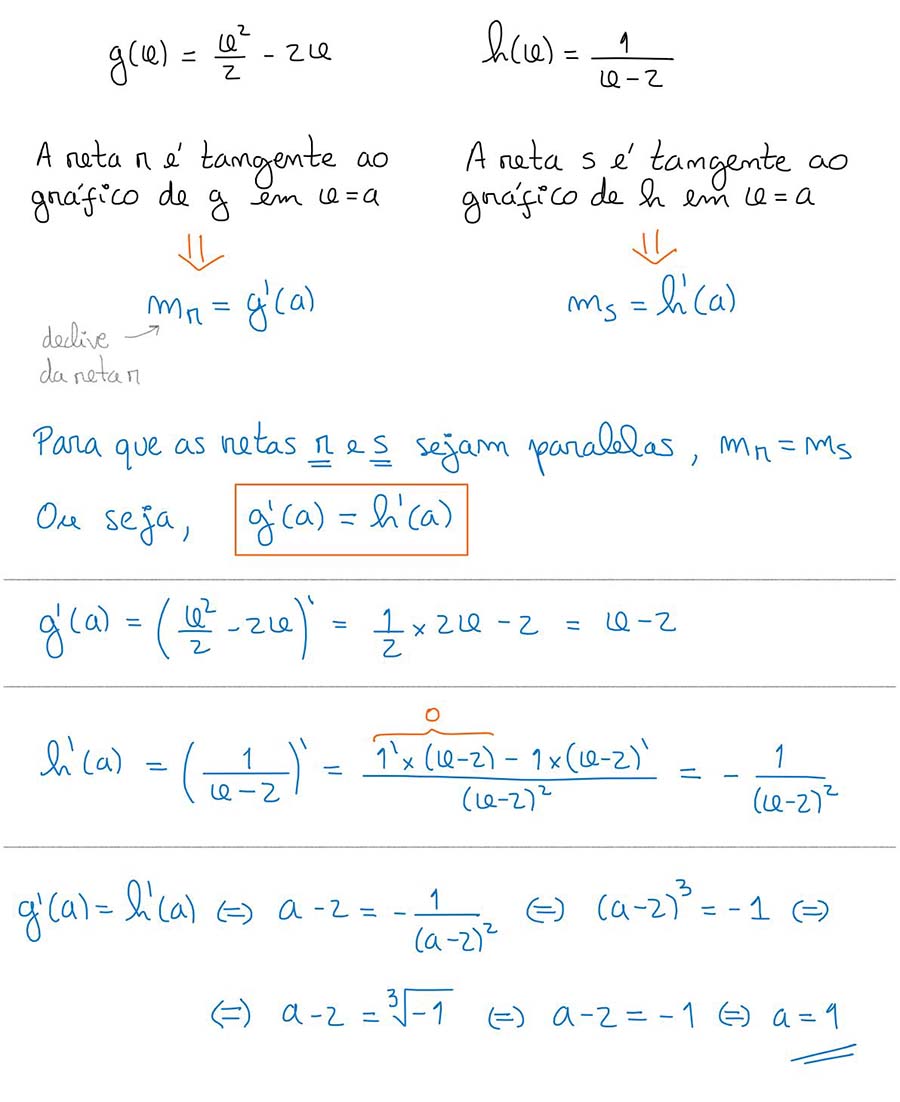 g(x) = x²/2 - 2x
h(x) = 1/(x-2)
A reta r é tangente ao
gráfico de g em x=a
A reta s é tangente ao
gráfico de h em x=a
⇓
⇓
m_r = g'(a)
m_s = h'(a)
declive →
da reta r
Para que as retas r e s sejam paralelas, m_r = m_s
Ou seja, g'(a) = h'(a)
g'(a) = (x²/2 - 2x)' = 1/2 × 2x - 2 = x - 2
0
h'(a) = (1/(x-2))' = (1' × (x-2) - 1 × (x-2)')/(x-2)² = - 1/(x-2)²
g'(a) = h'(a) ⇔ a - 2 = - 1/(a-2)² ⇔ (a-2)³ = -1 ⇔
⇔ a - 2 = ³√-1 ⇔ a - 2 = -1 ⇔ a = 1